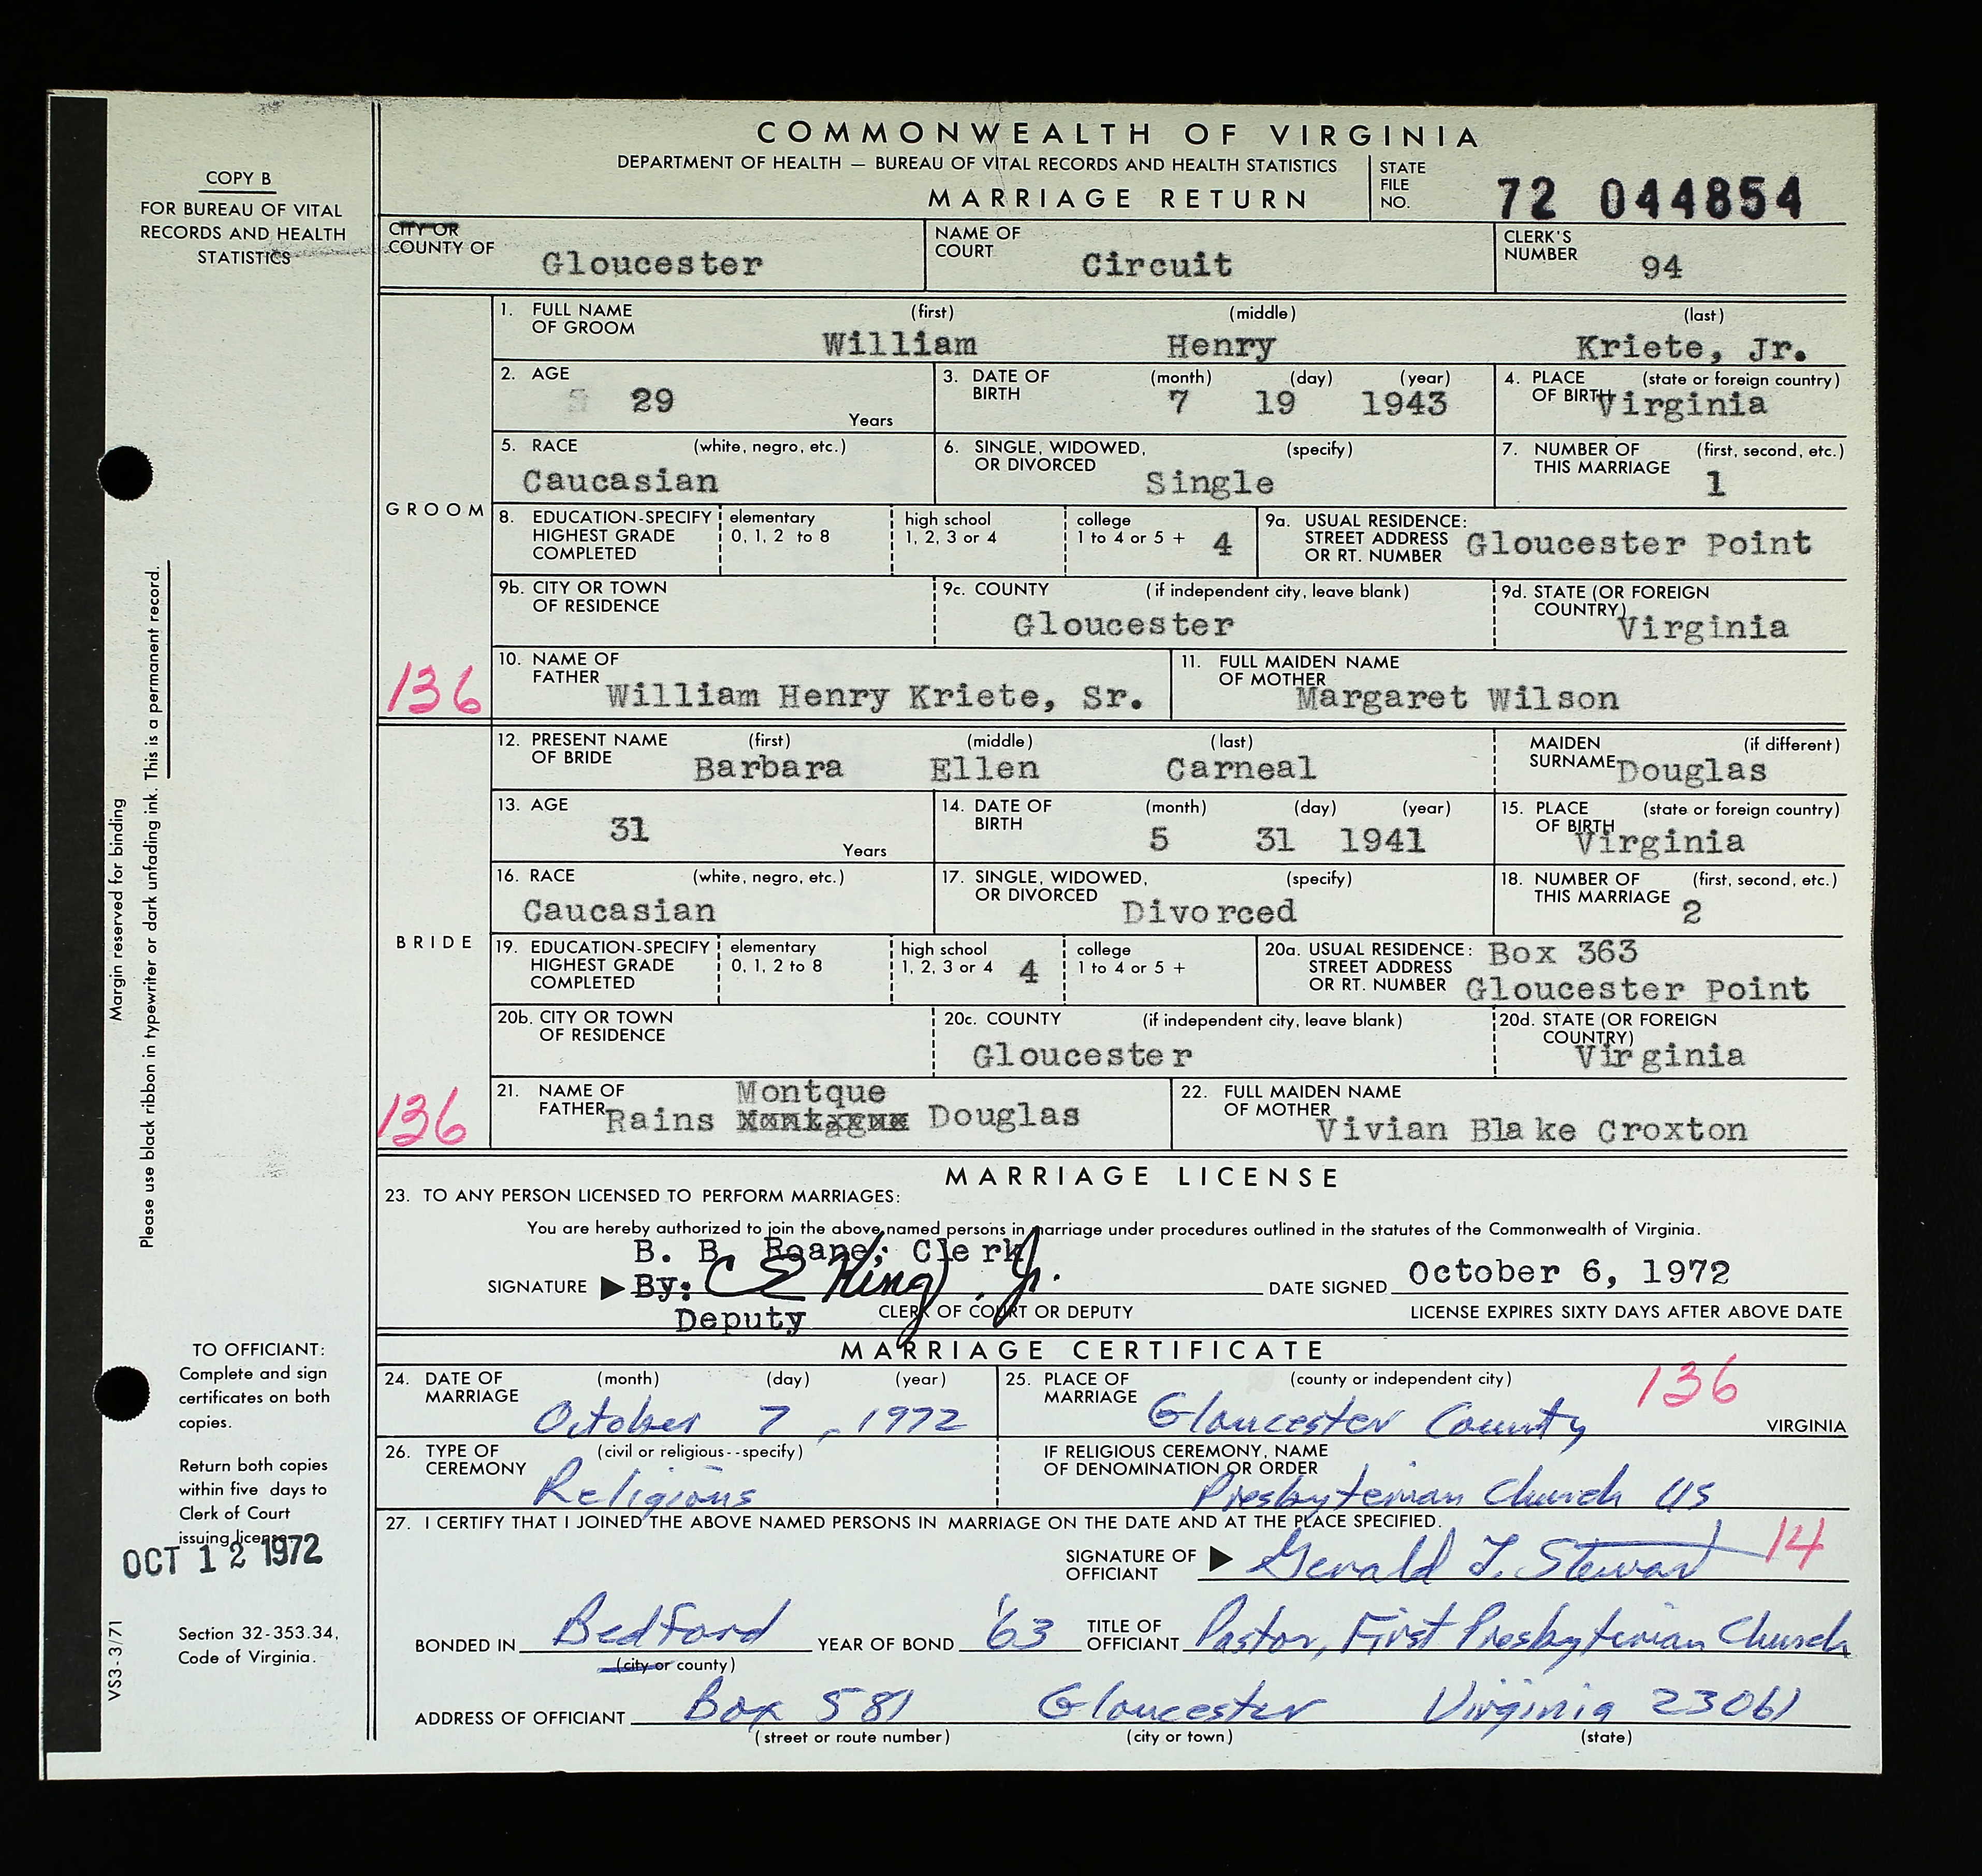 COMMONWEALTH OF VIRGINIA
DEPARTMENT OF HEALTH — BUREAU OF VITAL RECORDS AND HEALTH STATISTICS
MARRIAGE RETURN
STATE FILE NO. 72 044854
COPY B
FOR BUREAU OF VITAL
RECORDS AND HEALTH
STATISTICS
CITY OR COUNTY OF Gloucester
NAME OF COURT Circuit
CLERK'S NUMBER 94
GROOM
1. FULL NAME OF GROOM (first) William (middle) Henry (last) Kriete, Jr.
2. AGE 29 Years
3. DATE OF BIRTH (month) 7 (day) 19 (year) 1943
4. PLACE OF BIRTH (state or foreign country) Virginia
5. RACE (white, negro, etc.) Caucasian
6. SINGLE, WIDOWED, OR DIVORCED (specify) Single
7. NUMBER OF THIS MARRIAGE (first, second, etc.) 1
8. EDUCATION-SPECIFY HIGHEST GRADE COMPLETED elementary 0, 1, 2 to 8 high school 1, 2, 3 or 4 college 1 to 4 or 5 + 4
9a. USUAL RESIDENCE: STREET ADDRESS OR RT. NUMBER Gloucester Point
9b. CITY OR TOWN OF RESIDENCE
9c. COUNTY (if independent city, leave blank) Gloucester
9d. STATE (OR FOREIGN COUNTRY) Virginia
136
10. NAME OF FATHER William Henry Kriete, Sr.
11. FULL MAIDEN NAME OF MOTHER Margaret Wilson
BRIDE
12. PRESENT NAME OF BRIDE (first) Barbara (middle) Ellen (last) Carneal
MAIDEN SURNAME (if different) Douglas
13. AGE 31 Years
14. DATE OF BIRTH (month) 5 (day) 31 (year) 1941
15. PLACE OF BIRTH (state or foreign country) Virginia
16. RACE (white, negro, etc.) Caucasian
17. SINGLE, WIDOWED, OR DIVORCED (specify) Divorced
18. NUMBER OF THIS MARRIAGE (first, second, etc.) 2
19. EDUCATION-SPECIFY HIGHEST GRADE COMPLETED elementary 0, 1, 2 to 8 high school 1, 2, 3 or 4 4 college 1 to 4 or 5 +
20a. USUAL RESIDENCE: STREET ADDRESS OR RT. NUMBER Box 363 Gloucester Point
20b. CITY OR TOWN OF RESIDENCE
20c. COUNTY (if independent city, leave blank) Gloucester
20d. STATE (OR FOREIGN COUNTRY) Virginia
136
21. NAME OF FATHER Rains Montque Douglas
22. FULL MAIDEN NAME OF MOTHER Vivian Blake Croxton
MARRIAGE LICENSE
23. TO ANY PERSON LICENSED TO PERFORM MARRIAGES:
You are hereby authorized to join the above named persons in marriage under procedures outlined in the statutes of the Commonwealth of Virginia.
B. B. Roane, Clerk
SIGNATURE By: C E King Jr.
DATE SIGNED October 6, 1972
Deputy CLERK OF COURT OR DEPUTY
LICENSE EXPIRES SIXTY DAYS AFTER ABOVE DATE
MARRIAGE CERTIFICATE
24. DATE OF MARRIAGE (month) October (day) 7, (year) 1972
25. PLACE OF MARRIAGE (county or independent city) Gloucester County VIRGINIA
136
26. TYPE OF CEREMONY (civil or religious--specify) Religious
IF RELIGIOUS CEREMONY, NAME OF DENOMINATION OR ORDER Presbyterian Church US
27. I CERTIFY THAT I JOINED THE ABOVE NAMED PERSONS IN MARRIAGE ON THE DATE AND AT THE PLACE SPECIFIED.
SIGNATURE OF OFFICIANT Gerald L. Stewart 14
BONDED IN Bedford (city or county) YEAR OF BOND '63 TITLE OF OFFICIANT Pastor, First Presbyterian Church
ADDRESS OF OFFICIANT Box 581 Gloucester Virginia 23061
(street or route number) (city or town) (state)
Margin reserved for binding
Please use black ribbon in typewriter or dark unfading ink. This is a permanent record.
TO OFFICIANT:
Complete and sign
certificates on both
copies.
Return both copies
within five days to
Clerk of Court
issuing license
OCT 12 1972
Section 32-353.34,
Code of Virginia.
VS3-3/71